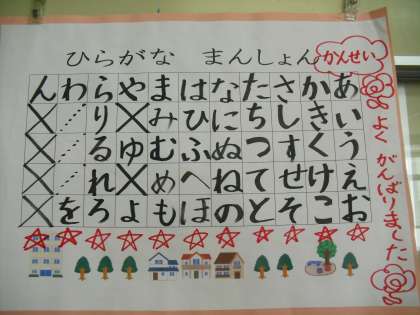 ひらがな まんしょん
かんせい
よく がんばりました
んわらやまはなたさかあ
りみひにちしきい
るゆむふぬつすくう
れめへねてせけえ
をろよもほのとそこお